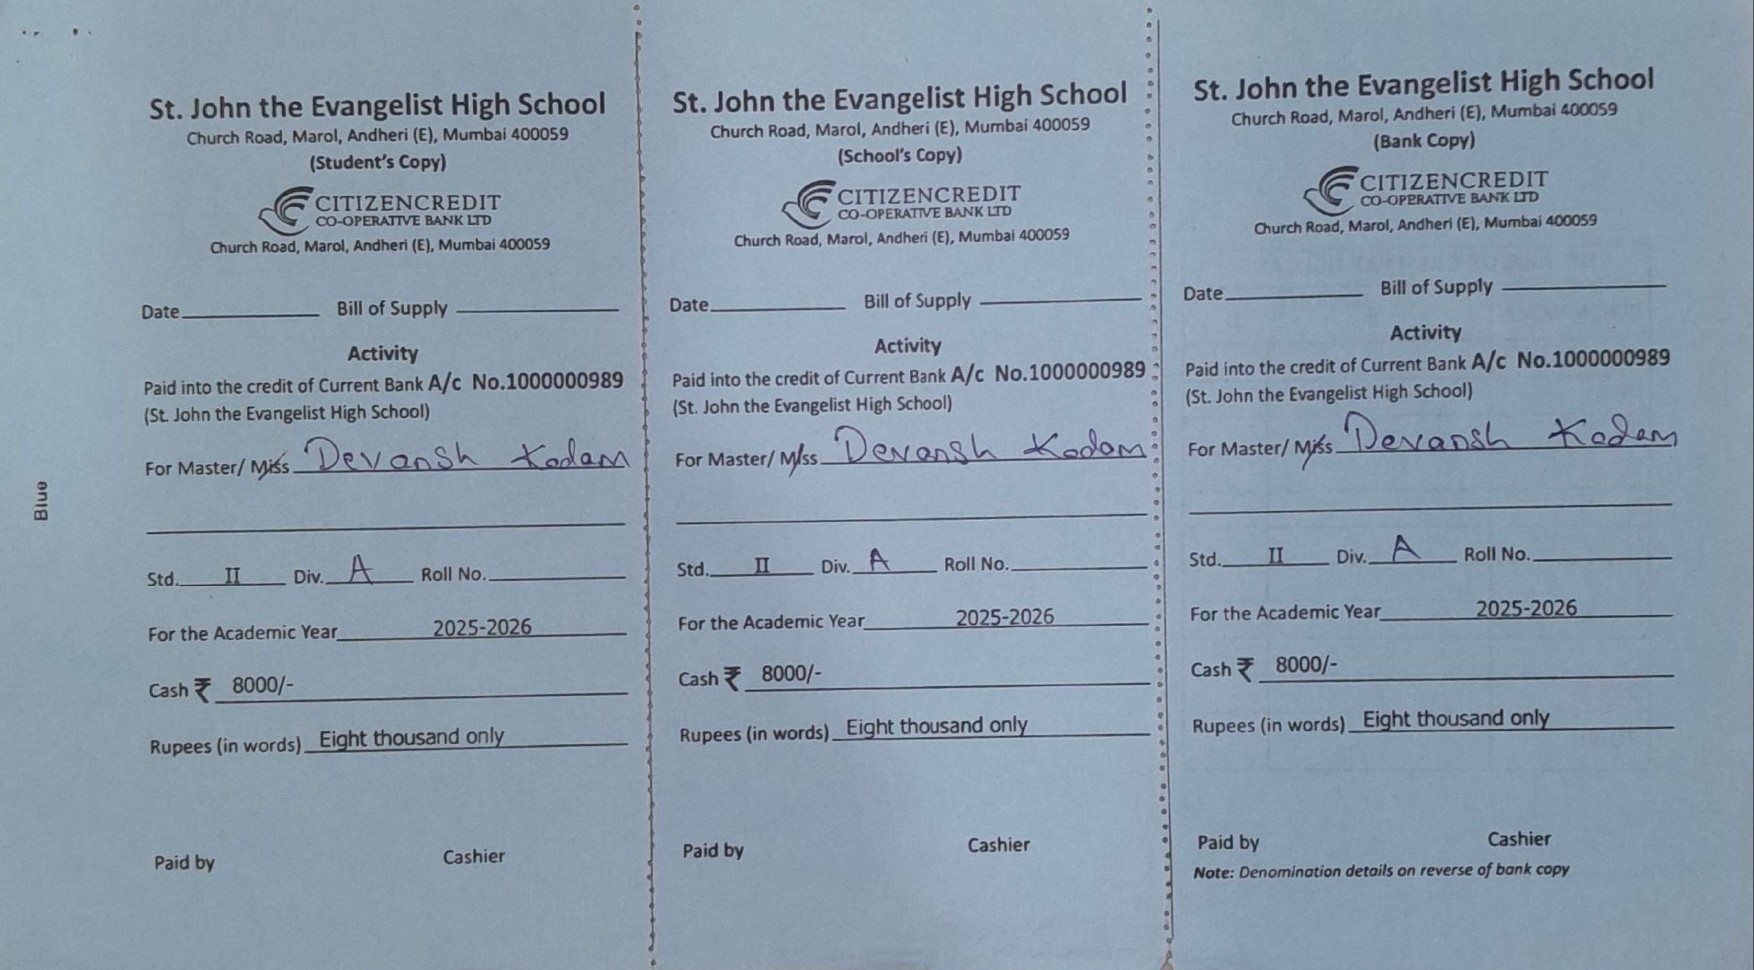 St. John the Evangelist High School
Church Road, Marol, Andheri (E), Mumbai 400059
(Student's Copy)
CITIZENCREDIT
CO-OPERATIVE BANK LTD
Church Road, Marol, Andheri (E), Mumbai 400059
Date Bill of Supply
Activity
Paid into the credit of Current Bank A/c No.1000000989
(St. John the Evangelist High School)
For Master/ Miss Devansh Kadam
Std. II Div. A Roll No.
For the Academic Year 2025-2026
Cash ₹ 8000/-
Rupees (in words) Eight thousand only
Paid by Cashier
Blue
St. John the Evangelist High School
Church Road, Marol, Andheri (E), Mumbai 400059
(School's Copy)
CITIZENCREDIT
CO-OPERATIVE BANK LTD
Church Road, Marol, Andheri (E), Mumbai 400059
Date Bill of Supply
Activity
Paid into the credit of Current Bank A/c No.1000000989
(St. John the Evangelist High School)
For Master/ Miss Devansh Kadam
Std. II Div. A Roll No.
For the Academic Year 2025-2026
Cash ₹ 8000/-
Rupees (in words) Eight thousand only
Paid by Cashier
St. John the Evangelist High School
Church Road, Marol, Andheri (E), Mumbai 400059
(Bank Copy)
CITIZENCREDIT
CO-OPERATIVE BANK LTD
Church Road, Marol, Andheri (E), Mumbai 400059
Date Bill of Supply
Activity
Paid into the credit of Current Bank A/c No.1000000989
(St. John the Evangelist High School)
For Master/ Miss Devansh Kadam
Std. II Div. A Roll No.
For the Academic Year 2025-2026
Cash ₹ 8000/-
Rupees (in words) Eight thousand only
Paid by Cashier
Note: Denomination details on reverse of bank copy